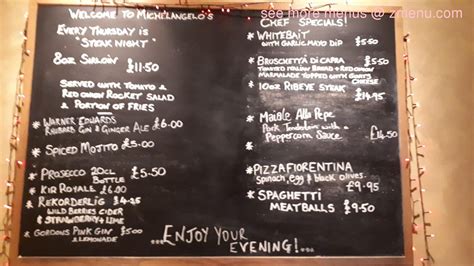 see more menus @ zmenu.com
WELCOME TO MICHELANGELO'S
EVERY THURSDAY IS
"STEAK NIGHT"
8OZ SIRLOIN £11.50
SERVED WITH TOMATO &
RED ONION ROCKET SALAD
& PORTION OF FRIES
* WARNER EDWARDS £6.00
RHUBARB GIN & GINGER ALE
* SPICED MOJITO £5.00
* PROSECCO 20CL £5.50
BOTTLE
* KIR ROYALE £5.00
* REKORDERLIG £4.95
WILD BERRIES CIDER
& STRAWBERRY + LIME
* GORDONS PINK GIN £5.00
& LEMONADE
CHEF SPECIALS!
* WHITEBAIT £5.50
WITH GARLIC MAYO DIP
* BRUSCHETTA DI CAPRA £5.50
TOASTED ITALIAN BREAD + RED ONION
MARMALADE TOPPED WITH GOATS
CHEESE
* 10OZ RIBEYE STEAK £14.95
* MAIALE ALLA PEPE
PORK TENDERLOIN WITH A
PEPPERCORN SAUCE £14.50
* PIZZA FIORENTINA
SPINACH, EGG & BLACK OLIVES
£9.95
* SPAGHETTI
MEATBALLS £9.50
...ENJOY YOUR
EVENING!...